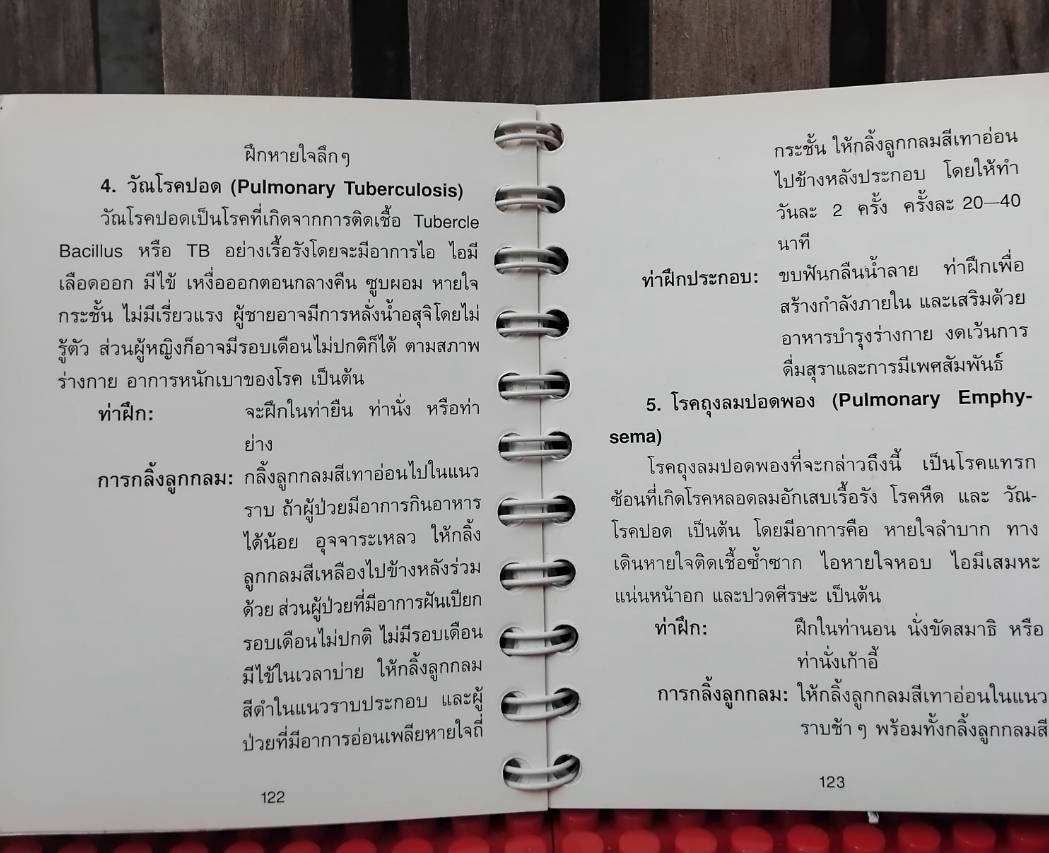 ฝึกหายใจลึกๆ
4. วัณโรคปอด (Pulmonary Tuberculosis)
วัณโรคปอดเป็นโรคที่เกิดจากการติดเชื้อ Tubercle
Bacillus หรือ TB อย่างเรื้อรังโดยจะมีอาการไอ ไอมี
เลือดออก มีไข้ เหงื่อออกตอนกลางคืน ซูบผอม หายใจ
กระชั้น ไม่มีเรี่ยวแรง ผู้ชายอาจมีการหลั่งน้ำอสุจิโดยไม่
รู้ตัว ส่วนผู้หญิงก็อาจมีรอบเดือนไม่ปกติก็ได้ ตามสภาพ
ร่างกาย อาการหนักเบาของโรค เป็นต้น
ท่าฝึก: จะฝึกในท่ายืน ท่านั่ง หรือท่า
ย่าง
การกลิ้งลูกกลม: กลิ้งลูกกลมสีเทาอ่อนไปในแนว
ราบ ถ้าผู้ป่วยมีอาการกินอาหาร
ได้น้อย อุจจาระเหลว ให้กลิ้ง
ลูกกลมสีเหลืองไปข้างหลังร่วม
ด้วย ส่วนผู้ป่วยที่มีอาการฝันเปียก
รอบเดือนไม่ปกติ ไม่มีรอบเดือน
มีไข้ในเวลาบ่าย ให้กลิ้งลูกกลม
สีดำในแนวราบประกอบ และผู้
ป่วยที่มีอาการอ่อนเพลียหายใจถี่
122
กระชั้น ให้กลิ้งลูกกลมสีเทาอ่อน
ไปข้างหลังประกอบ โดยให้ทำ
วันละ 2 ครั้ง ครั้งละ 20—40
นาที
ท่าฝึกประกอบ: ขบฟันกลืนน้ำลาย ท่าฝึกเพื่อ
สร้างกำลังภายใน และเสริมด้วย
อาหารบำรุงร่างกาย งดเว้นการ
ดื่มสุราและการมีเพศสัมพันธ์
5. โรคถุงลมปอดพอง (Pulmonary Emphy-
sema)
โรคถุงลมปอดพองที่จะกล่าวถึงนี้ เป็นโรคแทรก
ซ้อนที่เกิดโรคหลอดลมอักเสบเรื้อรัง โรคหืด และ วัณ-
โรคปอด เป็นต้น โดยมีอาการคือ หายใจลำบาก ทาง
เดินหายใจติดเชื้อซ้ำซาก ไอหายใจหอบ ไอมีเสมหะ
แน่นหน้าอก และปวดศีรษะ เป็นต้น
ท่าฝึก: ฝึกในท่านอน นั่งขัดสมาธิ หรือ
ท่านั่งเก้าอี้
การกลิ้งลูกกลม: ให้กลิ้งลูกกลมสีเทาอ่อนในแนว
ราบช้าๆ พร้อมทั้งกลิ้งลูกกลมสี
123